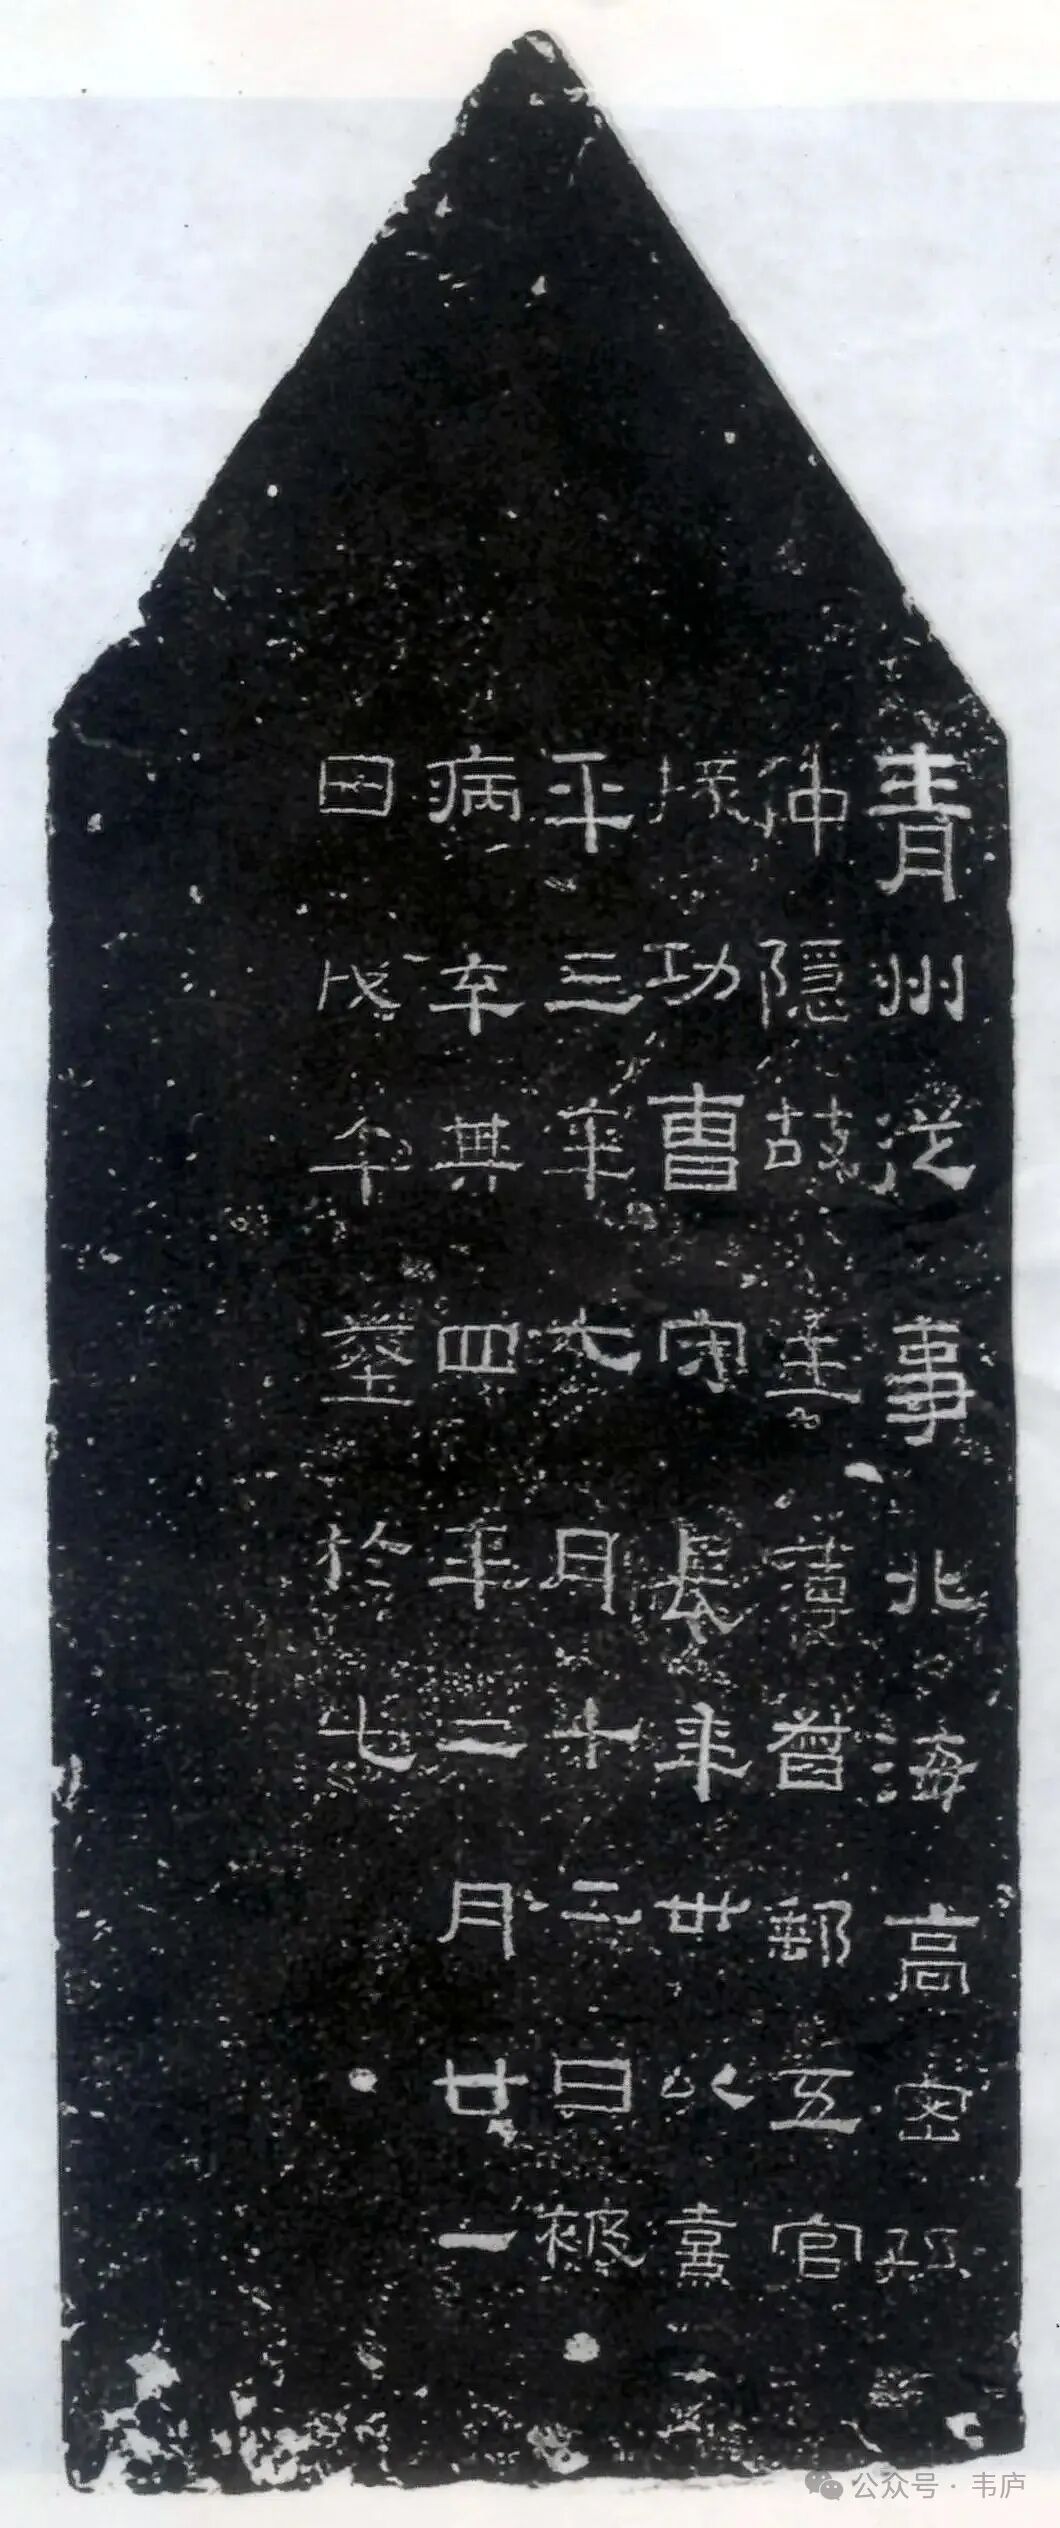 青州從事北海高密孫
仲隱故主簿督郵五官
掾功曹守長年卅以熹
平三年六月十二日被
病卒其四年二月廿一
日戊午葬於七
公众号·韦庐